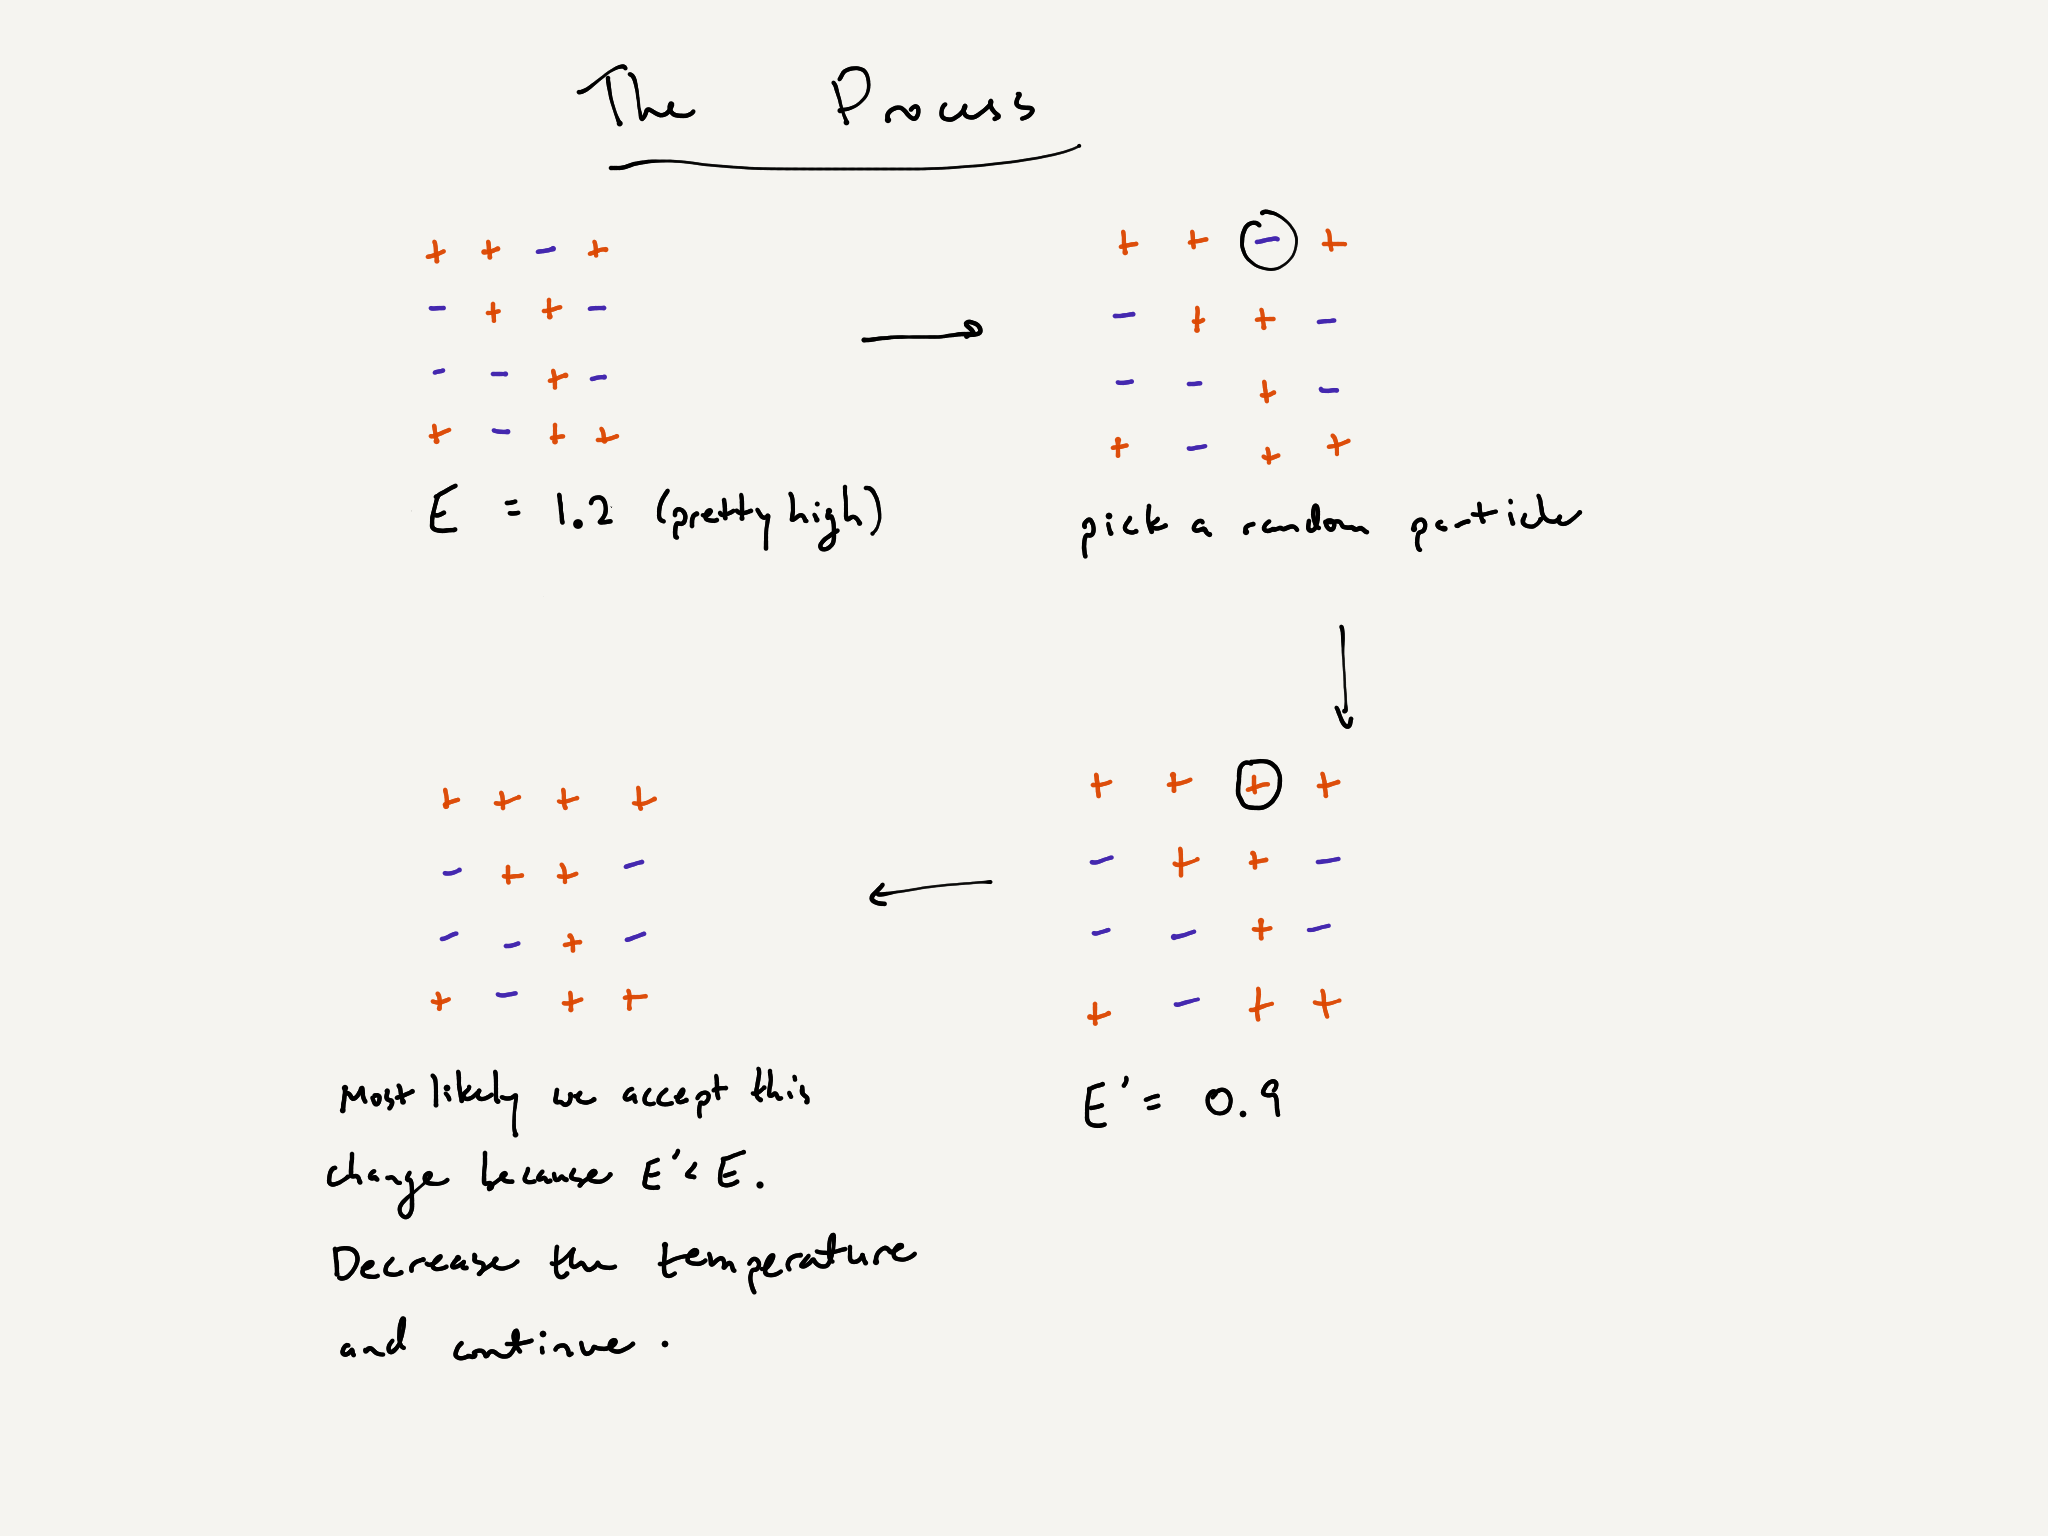 The Process
+ + - +
- + + -
- - + -
+ - + +
E = 1.2 (pretty high)
+ + - +
- + + -
- - + -
+ - + +
pick a random particle
+ + + +
- + + -
- - + -
+ - + +
E' = 0.9
+ + + +
- + + -
- - + -
+ - + +
Most likely we accept this
change because E' < E.
Decrease the temperature
and continue.